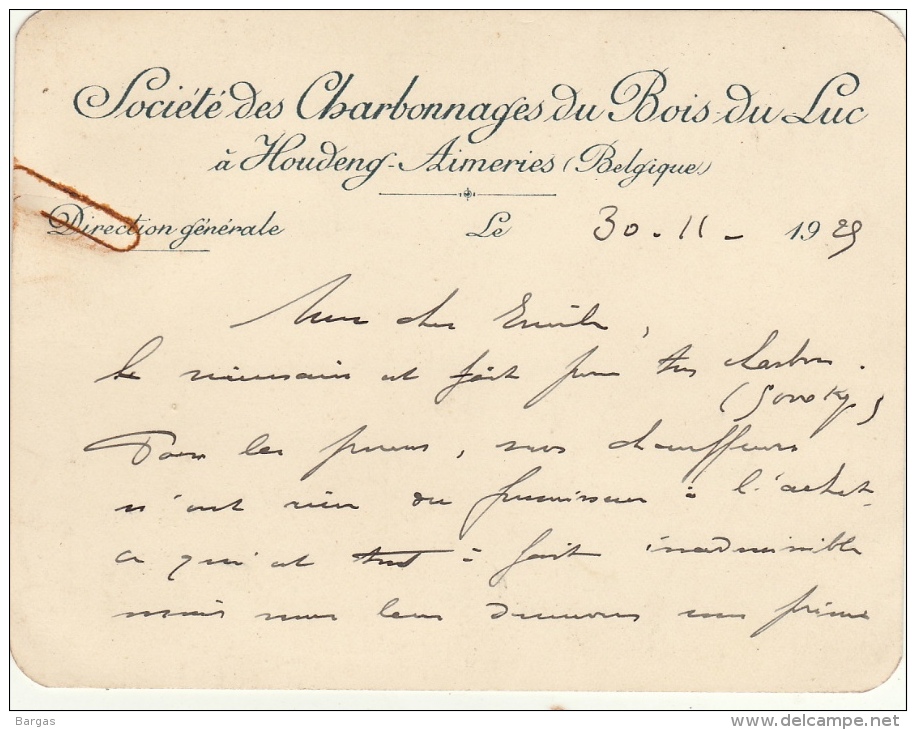 Société des Charbonnages du Bois-du-Luc
à Houdeng-Aimeries (Belgique)
Direction générale Le 30 - 11 - 1929
Mon cher Emile,
Le nécessaire est fait pour tes charbons.
(5000 kg)
Pour les pneus, nos chauffeurs
n'ont rien du fournisseur à l'achat
ce qui est tout à fait inadmissible
mais nous leur donnons une prime
Bargas
www.delcampe.net